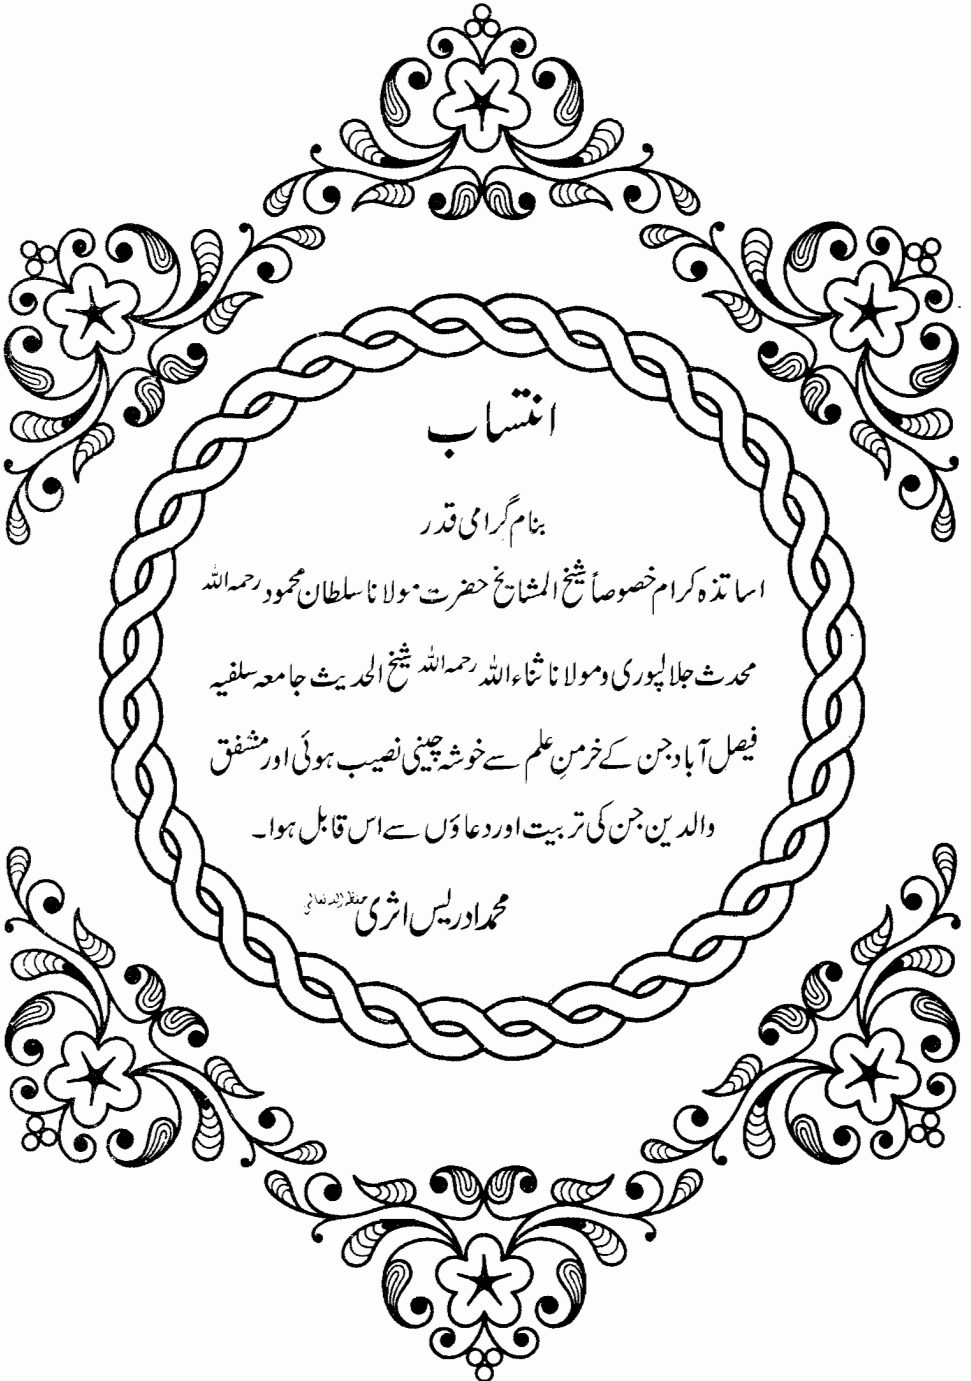 انتساب
بنام گرامی قدر
اساتذہ کرام خصوصاً شیخ المشایخ حضرت مولانا سلطان محمود رحمہ اللہ
محدث جلالپوری و مولانا ثناء اللہ رحمہ اللہ شیخ الحدیث جامعہ سلفیہ
فیصل آباد جن کے خرمنِ علم سے خوشہ چینی نصیب ہوئی اور مشفق
والدین جن کی تربیت اور دعاؤں سے اس قابل ہوا۔
محمد ادریس اثری حفظہ اللہ تعالیٰ